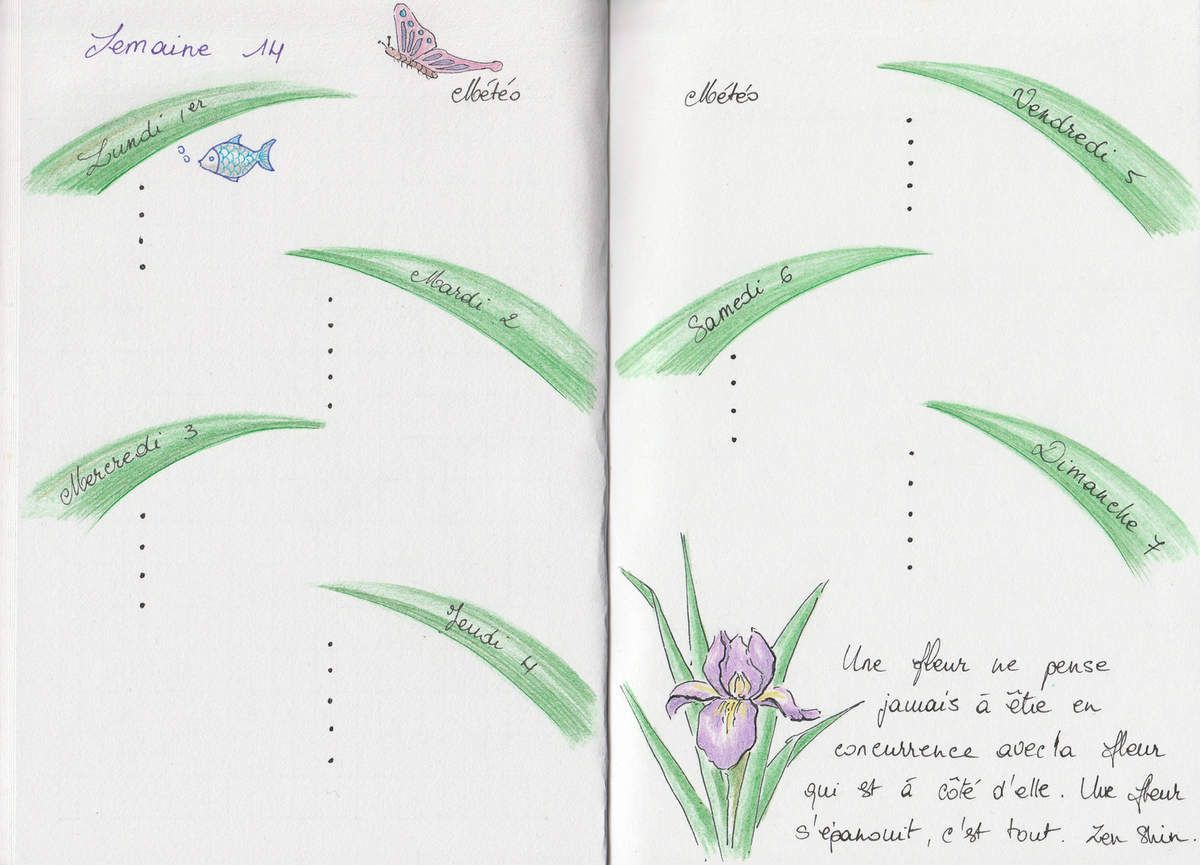 Semaine 14
Météo
Lundi 1er
Mardi 2
Mercredi 3
Jeudi 4
Météo
Vendredi 5
Samedi 6
Dimanche 7
Une fleur ne pense
jamais à être en
concurrence avec la fleur
qui est à côté d'elle. Une fleur
s'épanouit, c'est tout. Zen Shin.